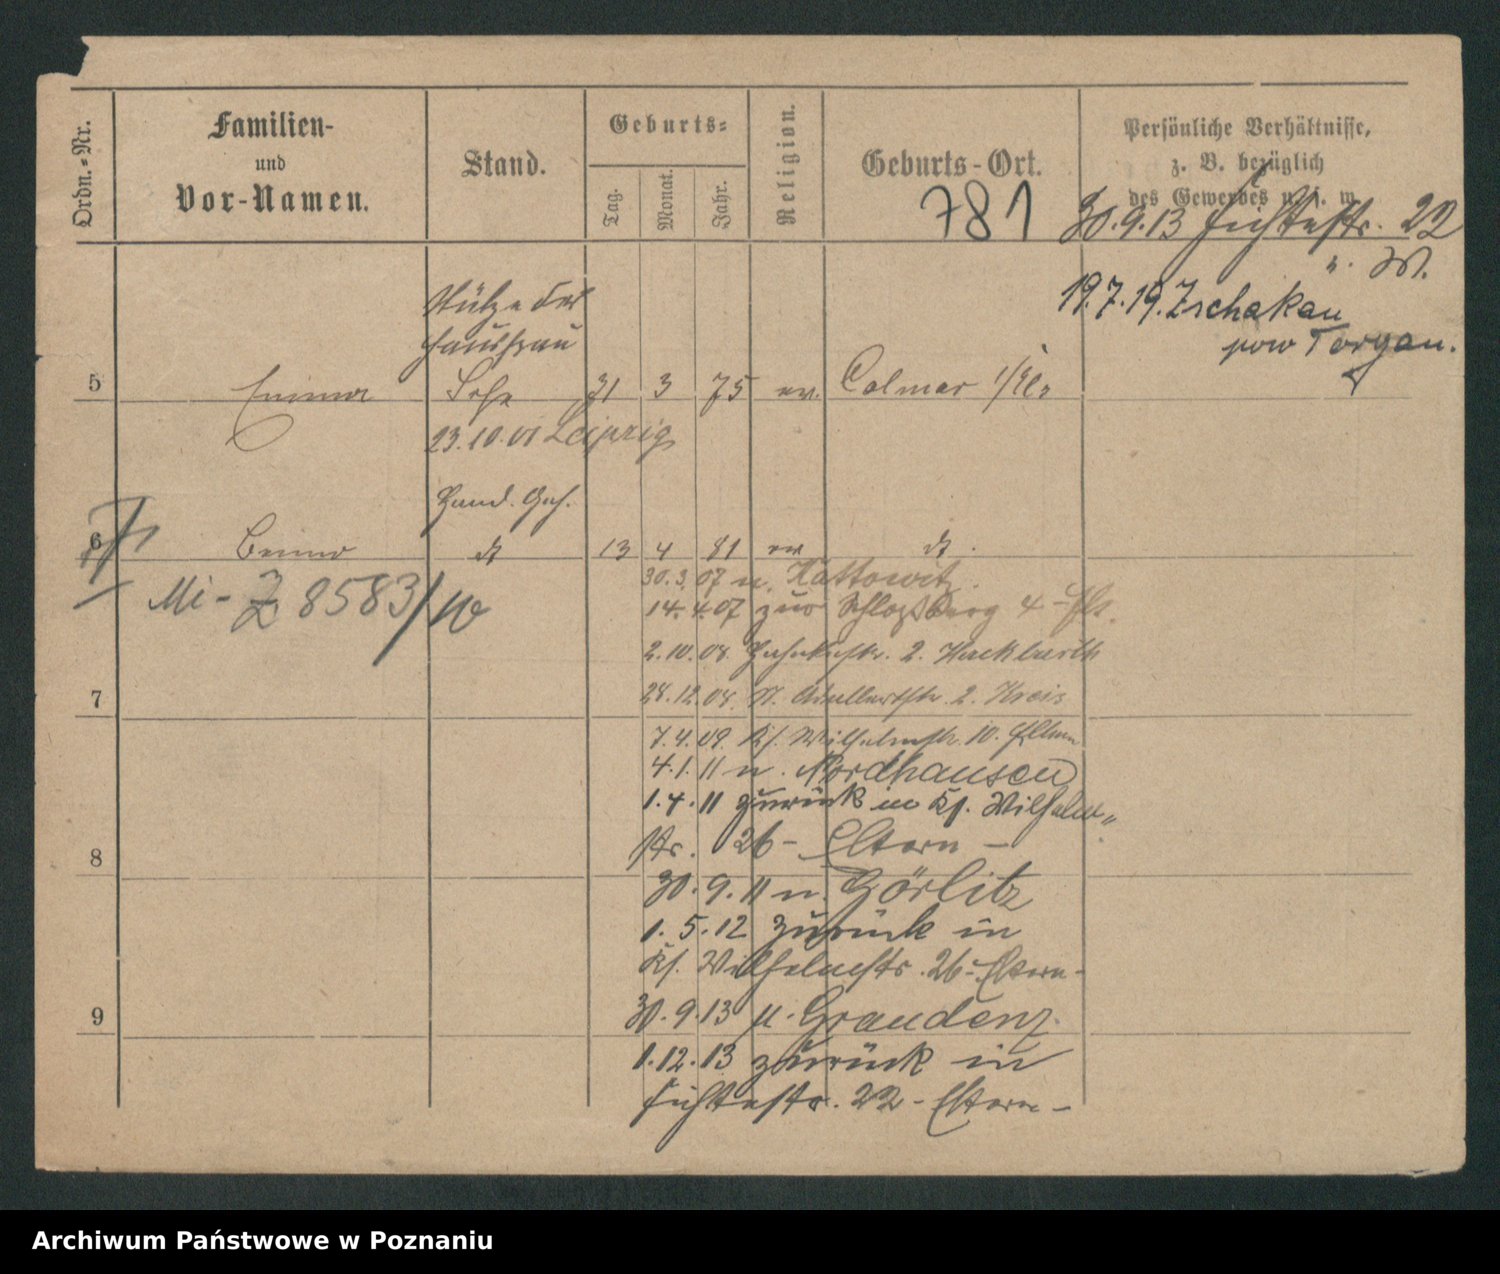 Ordn.-Nr.
Familien-
und
Vor-Namen.
Stand.
Geburts-
Tag.
Monat.
Jahr.
Religion.
Geburts-Ort.
Persönliche Verhältnisse,
z. B. bezüglich
des Gewerbes u. s. w.
781
30.9.13 Fichtestr. 22
19.7.19. Zschakau
pow Torgau.
Stütze der
Hausfrau
5 Emma 31 3 75 ev. Colmar i/Els
23.10.01 Leipzig
Hand. Geh.
6 Benno dt 13 4 81 ev dt.
30.3.07 n. Kattowitz.
Mi-Z 8583/
14.4.07 zur Schloßberg 4
2.10.08 2.
7
28.12.08. 2.
7.4.09. Kf. Wilhelmstr. 10. Eltern
4.1.11 n. Nordhausen
1.4.11 zurück in Kf. Wilhelm-
8
str. 26- Eltern -
30.9.11 n. Görlitz
1.5.12 zurück in
Kf. Wilhelmstr. 26- Eltern-
9
30.9.13 n. Graudenz.
1.12.13 zurück in
Fichtestr. 22 - Eltern -
Archiwum Państwowe w Poznaniu